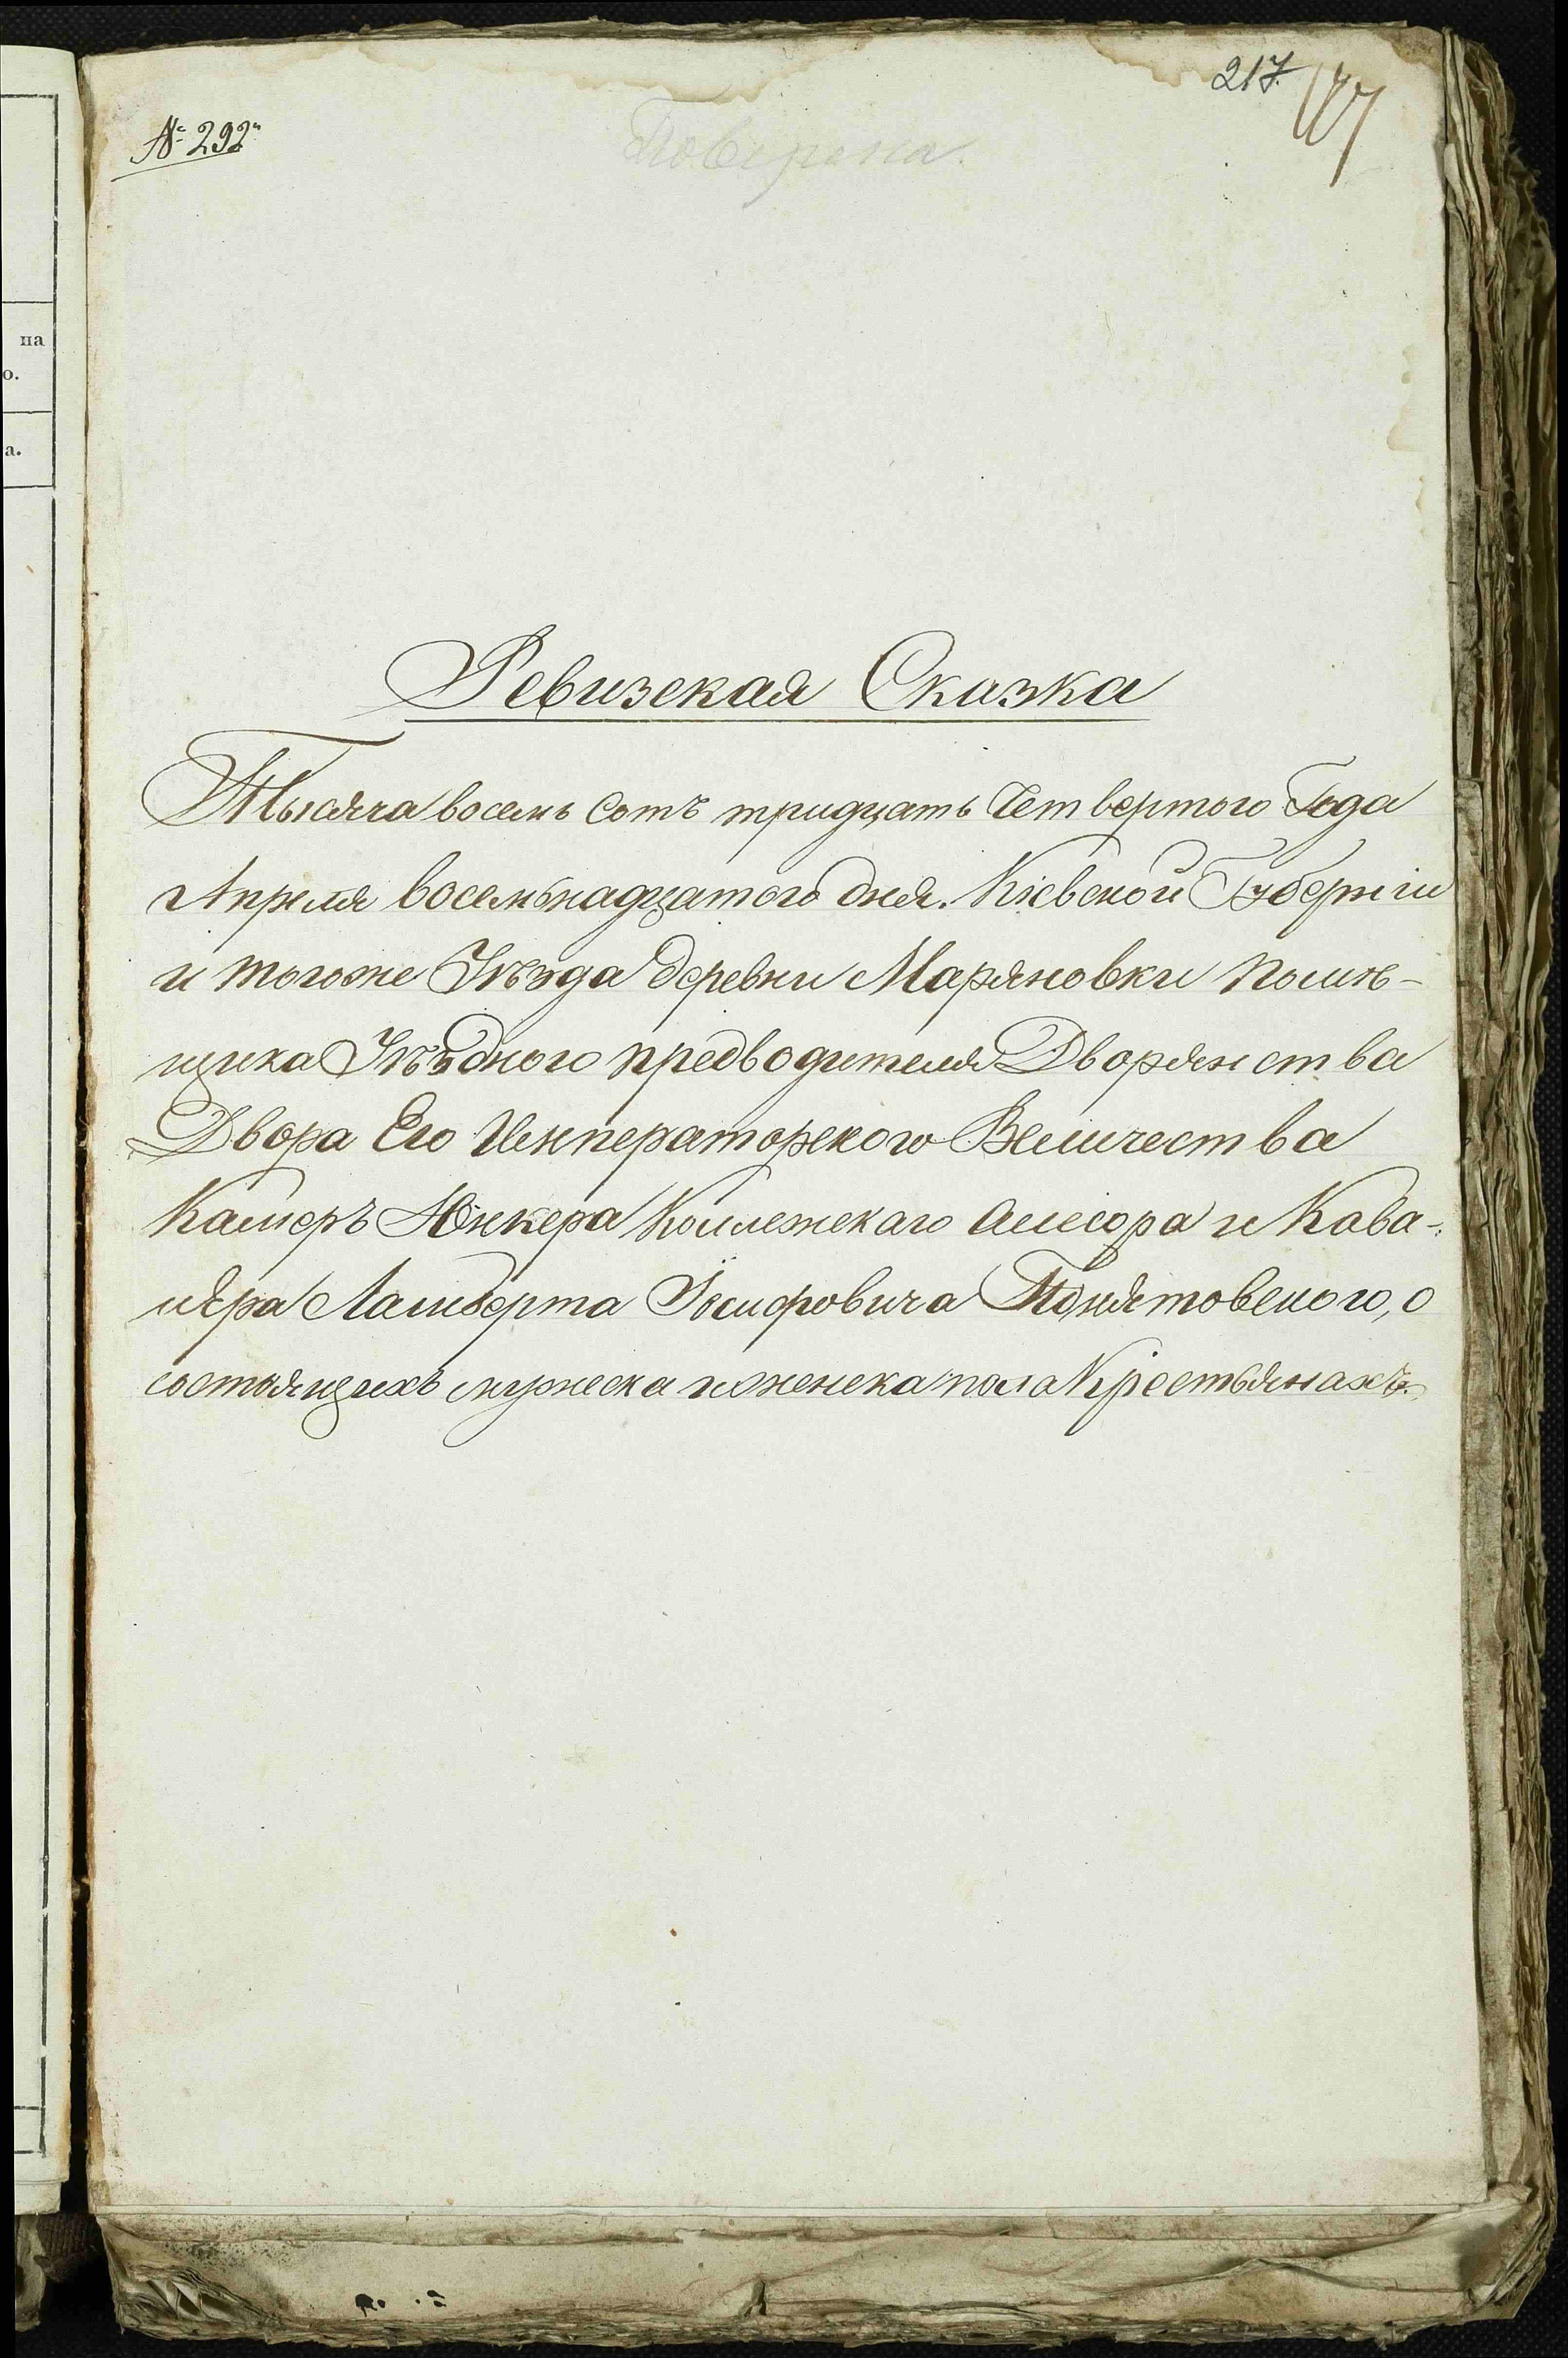 № 292й
Повѣрена.
217.
на
о.
а.
Ревизская Сказка
Тысяча восемь сотъ тридцать Четвертого Года
Апреля восемьнадцатого дня. Кіевской Губерніи
и тогоже Уѣзда деревни Маряновки Помѣ-
щика Уѣзднаго предводителя Дворянства
Двора Его Императорского Величества
Камеръ Юнкера Коллежскаго Ассесора и Кава-
лѣра Ламберта Іосифовича Понятовского, о
состоящихъ мужеска и женска пола Крестьянахъ.